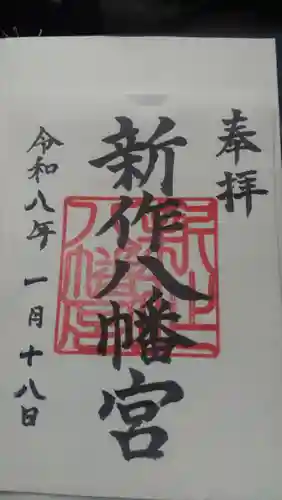 奉拝
新作八幡宮
令和八年一月十八日